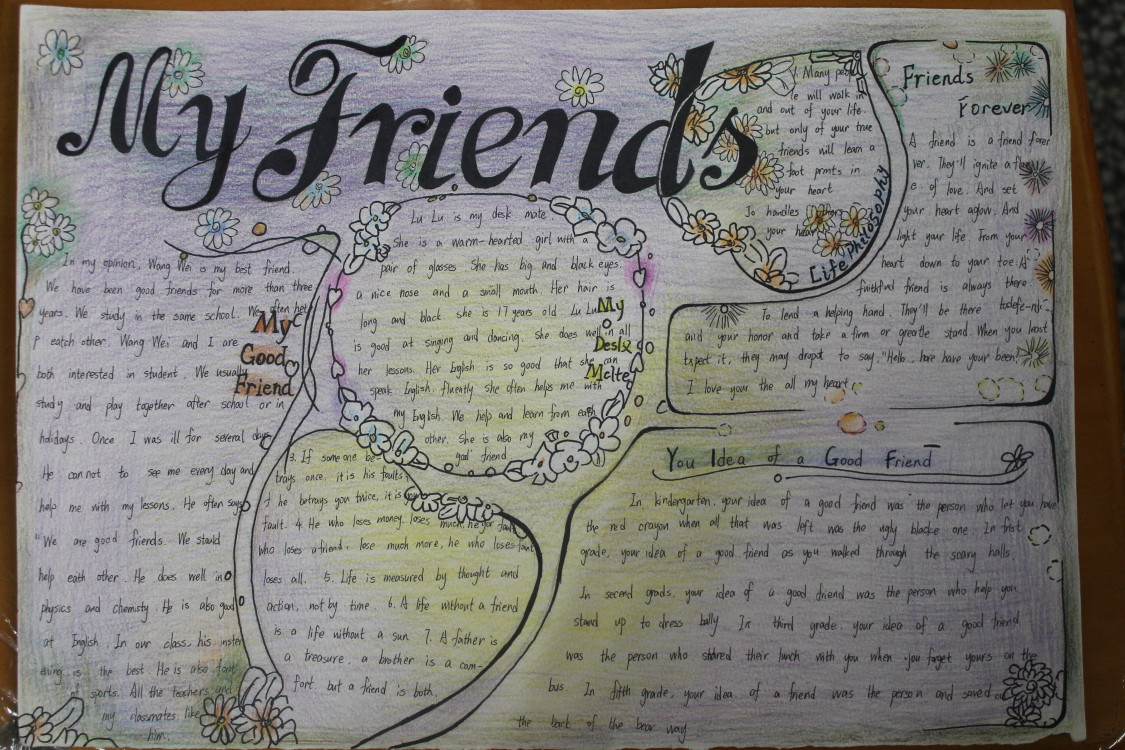 My Friends
In my opinion, Wang Wei is my best friend.
We have been good friends for more than three
years. We study in the same school. We often hel
P eatch other. Wang Wei and I are
both interested in student. We usually
study and play together after school or in
holidays. Once I was ill for several days
He can not to see me every day and
help me with my lessons. He often says
"We are good friends. We should
help eath other. He does well in
physics and chemisty. He is also good
at English. In our class, his
is the best. He is also
of sports. All the teachers and
my classmates like
him.
My
Good
Friend
Lu Lu is my desk mate
She is a warm-hearted girl with a
pair of glasses. She has big and black eyes.
a nice nose and a small mouth. Her hair is
long and black she is 17 years old Lu Lu
is good at singing and dancing. She does well in all
her lessons. Her English is so good that she can
speak English. fluently She often helps me with
my English We help and learn from each
other. She is also my
friend
My
Desk
3. If some one be
trays once. it is his faults
he betrays you twice, it is
fault. 4. He who loses money. loses much, he
who loses a friend. lose much more, he who loses
loses all. 5. Life is measured by thought and
action, not by time. 6. A life without a friend
is a life without a sun 7. A father is
a treasure. a brother is a com-
fort. but a friend is both.
1. Many peop
le will walk in
and out of your life.
but only of your true
friends will lean a
foot prints in
your heart
handles
your
Life philosophy
Friends
Forever
A friend is a friend forer
ver. They'll ignite a
e of love. And set
your heart aglow. And
light your life From your
heart down to your toe. A
faithful friend is always there
To lend a helping hand. They'll be there
and your honor and take a firm or greatle stand. When you least
Expect it, they may dropt to say, "Hello. hare have your been
I love your the all my heart
You Idea of a Good Friend
In kindergarten, your idea of a good friend was the person who let you have
the red crayon when all that was left was the ugly blacke one. In frist
grade, your idea of a good friend as you walked through the scary halls
In second grads, your idea of a good friend was the person who help you
stand up to dress bully. In third grade, your idea of a good friend
was the person who shared their lunch with you when you forget yours on the
bus In fifth grade, your idea of a friend was the person and saved
the back of the bear way